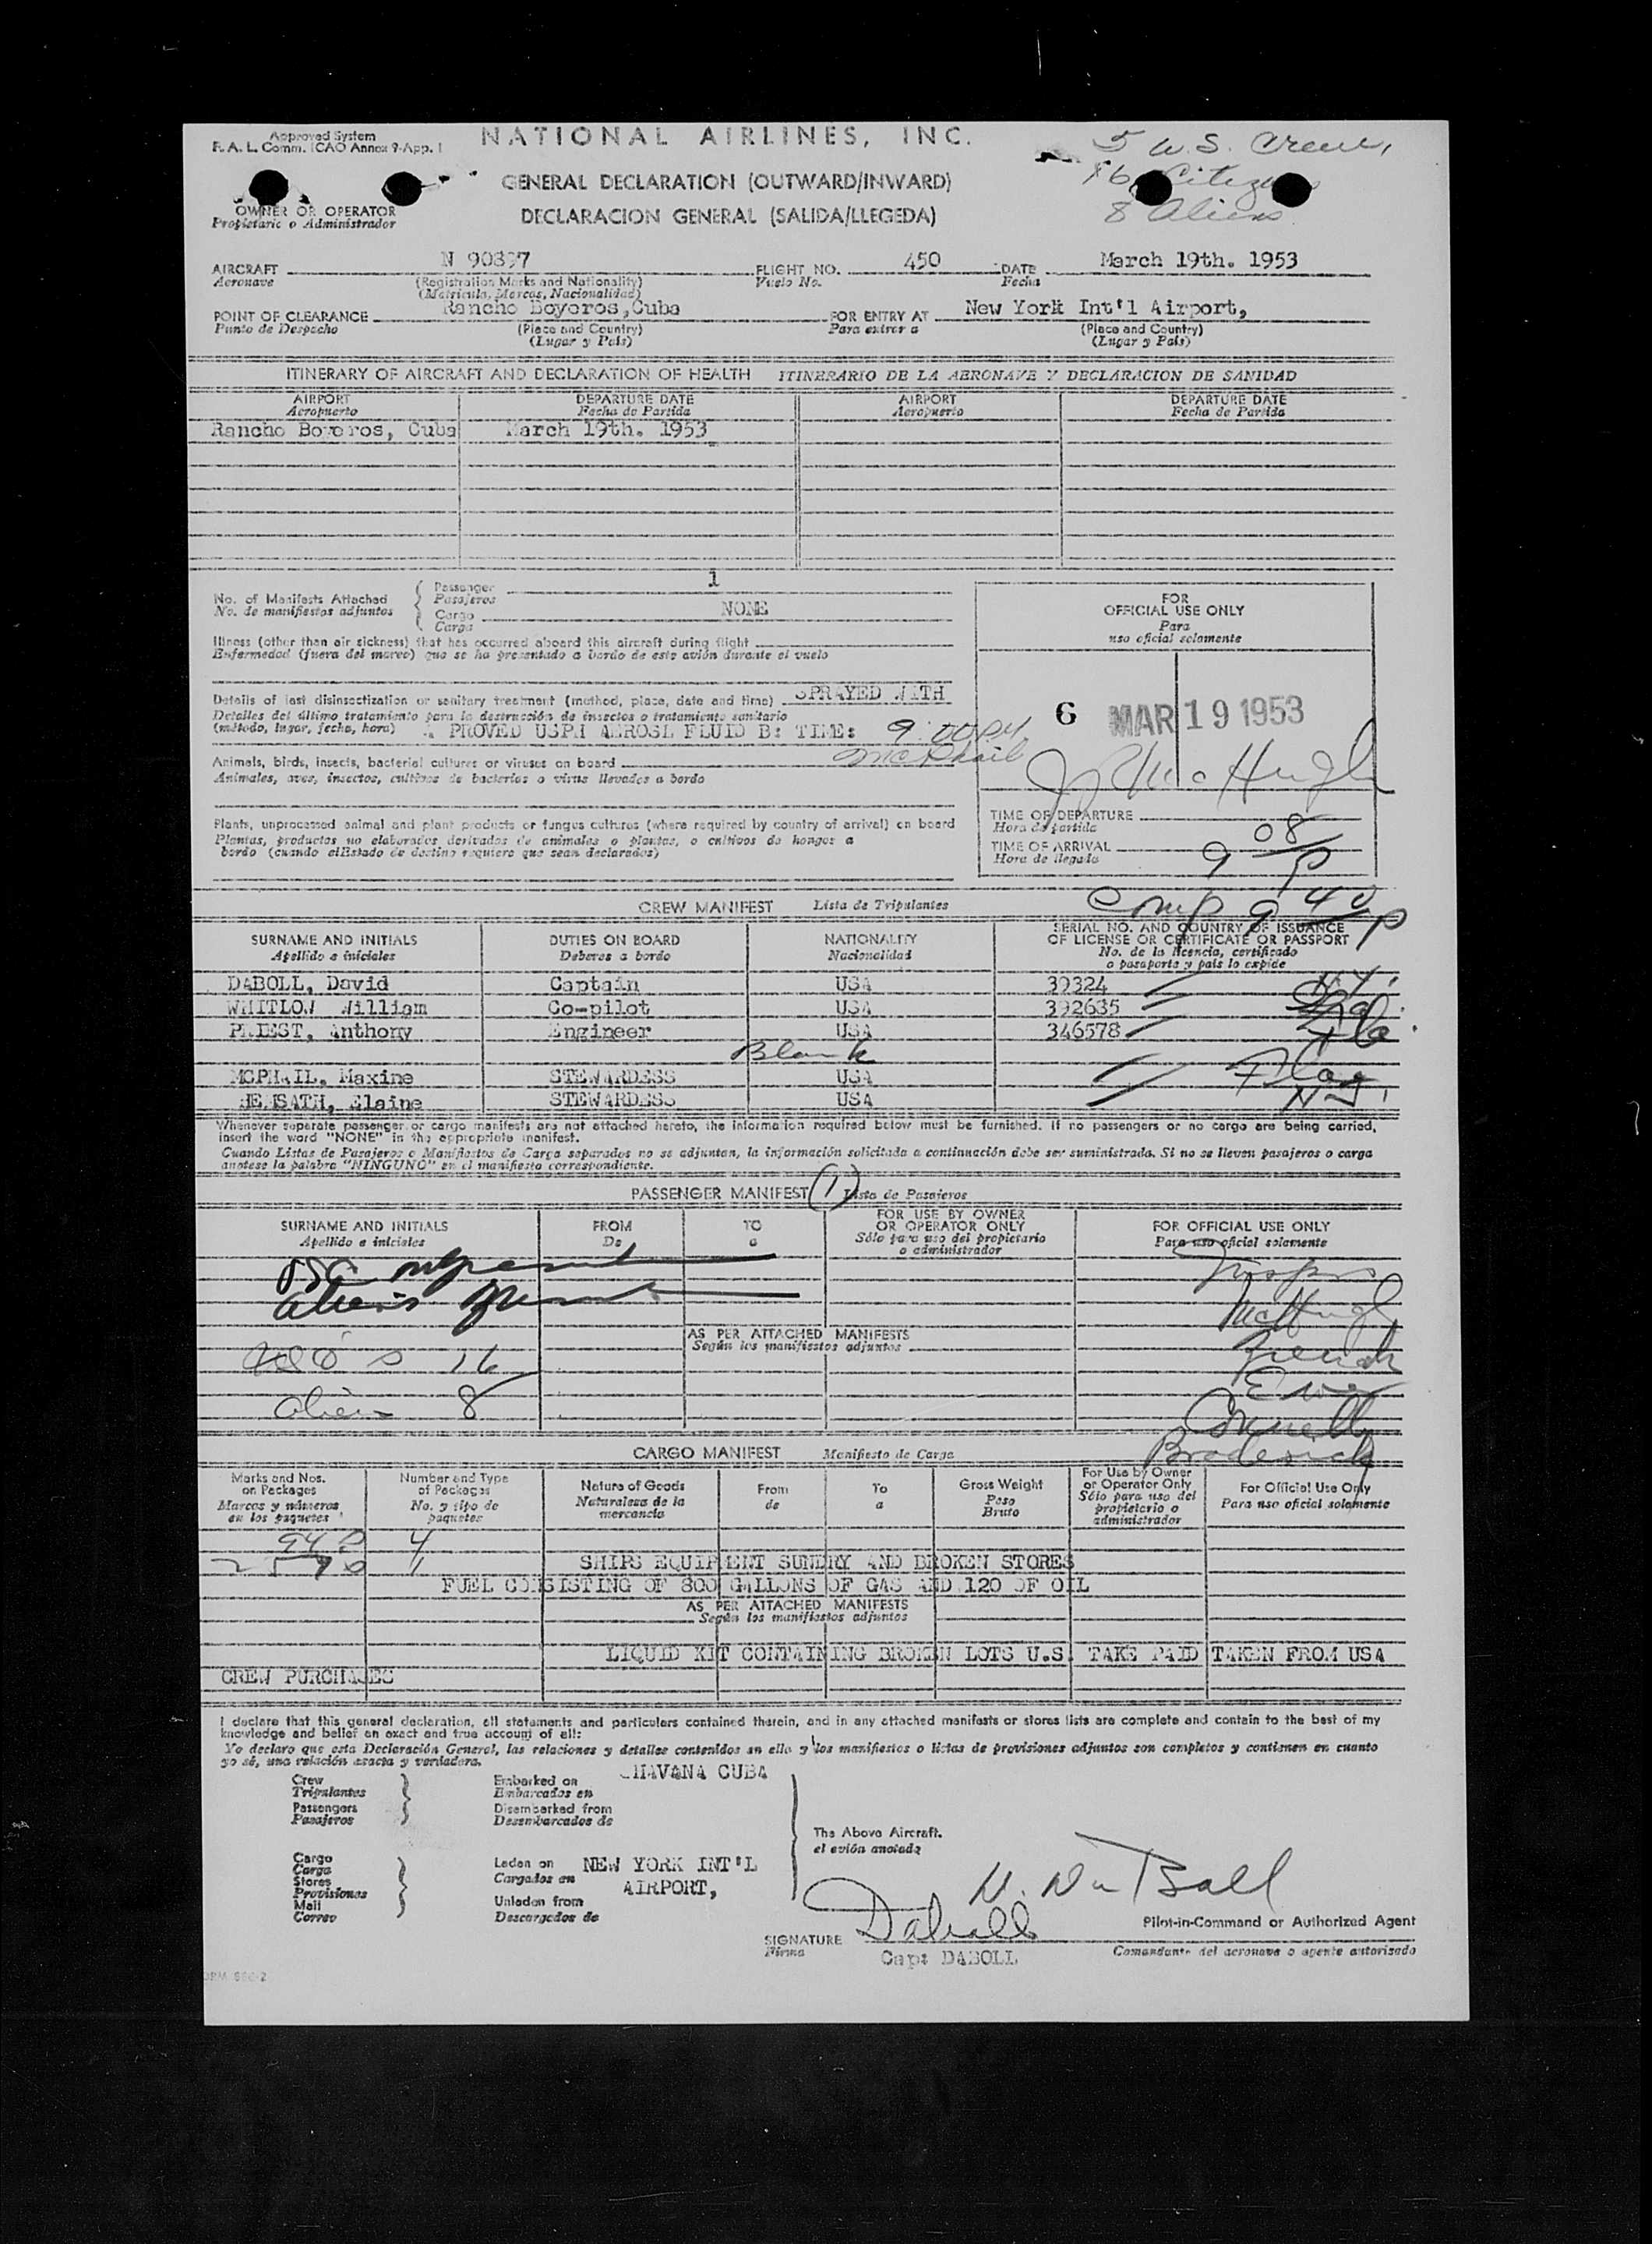 Approved System
F. A. L. Comm. ICAO Annex 9-App. 1
NATIONAL AIRLINES, INC.
5 U.S. Crew,
16 Citizens
8 Aliens
GENERAL DECLARATION (OUTWARD/INWARD)
DECLARACION GENERAL (SALIDA/LLEGEDA)
OWNER OR OPERATOR
Propietario o Administrador
AIRCRAFT N 90897 FLIGHT NO. 450 DATE March 19th. 1953
Aeronave (Registration Marks and Nationality) Vuelo No. Fecha
(Matricula, Marcas, Nacionalidad)
POINT OF CLEARANCE Rancho Boyoros,Cuba FOR ENTRY AT New York Int'l Airport,
Punto de Despacho (Place and Country) Para entrar a (Place and Country)
(Lugar y País) (Lugar y País)
ITINERARY OF AIRCRAFT AND DECLARATION OF HEALTH ITINERARIO DE LA AERONAVE Y DECLARACION DE SANIDAD
AIRPORT DEPARTURE DATE AIRPORT DEPARTURE DATE
Aeropuerto Fecha de Partida Aeropuerto Fecha de Partida
Rancho Boyeros, Cuba March 19th. 1953
No. of Manifests Attached Passenger 1
No. de manifiestos adjuntos Pasajeros
Cargo NONE
Carga
Illness (other than air sickness) that has occurred aboard this aircraft during flight
Enfermedad (fuera del mareo) que se ha presentado a bordo de este avión durante el vuelo
Details of last disinsectization or sanitary treatment (method, place, date and time) SPRAYED WITH
Detalles del último tratamiento para la destrucción de insectos o tratamiento sanitario
(método, lugar, fecha, hora) PROVED USPH AEROSL FLUID B: TIME: 9:00 PM
McPhail
Animals, birds, insects, bacterial cultures or viruses on board
Animales, aves, insectos, cultivos de bacterias o virus llevados a bordo
Plants, unprocessed animal and plant products or fungus cultures (where required by country of arrival) on board
Plantas, productos no elaborados derivados de animales o plantas, o cultivos de hongos a
bordo (cuando elEstado de destino requiera que sean declarados)
FOR
OFFICIAL USE ONLY
Para
uso oficial solamente
6 MAR 19 1953
McHugh
TIME OF DEPARTURE
Hora de partida
TIME OF ARRIVAL 9 08 P
Hora de llegada
Comp 9 40 P
CREW MANIFEST Lista de Tripulantes
SURNAME AND INITIALS DUTIES ON BOARD NATIONALITY SERIAL NO. AND COUNTRY OF ISSUANCE
Apellido e iniciales Deberes a bordo Nacionalidad OF LICENSE OR CERTIFICATE OR PASSPORT
No. de la licencia, certificado
o pasaporte y país lo expide
DABOLL, David Captain USA 39324 N.Y.
WHITLOW William Co-pilot USA 392635
PRIEST, Anthony Engineer USA 346578
Blank
MCPHAIL, Maxine STEWARDESS USA Fla
HEMSATH, Elaine STEWARDESS USA N.J.
Whenever separate passenger or cargo manifests are not attached hereto, the information required below must be furnished. If no passengers or no cargo are being carried,
insert the word "NONE" in the appropriate manifest.
Cuando Listas de Pasajeros o Manifiestos de Carga separados no se adjuntan, la información solicitada a continuación debe ser suministrada. Si no se lleven pasajeros o carga
anotese la palabra "NINGUNO" en el manifiesto correspondiente.
PASSENGER MANIFEST (1) Lista de Pasajeros
SURNAME AND INITIALS FROM TO FOR USE BY OWNER FOR OFFICIAL USE ONLY
Apellido e iniciales De a OR OPERATOR ONLY Para uso oficial solamente
Sólo para uso del propietario
o administrador
McHugh
AS PER ATTACHED MANIFESTS
Según los manifiestos adjuntos
French
USC's 16
Alien 8
Connelly
Broderick
CARGO MANIFEST Manifiesto de Carga
Marks and Nos. Number and Type Nature of Goods From To Gross Weight For Use by Owner For Official Use Only
on Packages of Packages Naturaleza de la de a Peso or Operator Only Para uso oficial solamente
Marcas y números No. y tipo de mercancía Bruto Sólo para uso del
en los paquetes paquetes propietario o
administrador
4
SHIPS EQUIPMENT SUNDRY AND BROKEN STORES
FUEL CONSISTING OF 800 GALLONS OF GAS AND 120 OF OIL
AS PER ATTACHED MANIFESTS
Según los manifiestos adjuntos
LIQUID KIT CONTAINING BROKEN LOTS U.S. TAKE PAID TAKEN FROM USA
CREW PURCHASES
I declare that this general declaration, all statements and particulars contained therein, and in any attached manifests or stores lists are complete and contain to the best of my
knowledge and belief an exact and true account of all:
Yo declaro que esta Declaración General, las relaciones y detalles contenidos en ella y los manifiestos o listas de provisiones adjuntos son completos y contienen en cuanto
yo sé, una relación exacta y verdadera.
Crew Embarked on HAVANA CUBA
Tripulantes Embarcados en
Passengers Disembarked from
Pasajeros Desembarcados de
The Above Aircraft.
el avión anotado
Cargo Laden on NEW YORK INT'L
Carga Cargados en AIRPORT,
Stores
Provisiones Unladen from
Mail Descargados de
Correo
Daboll
Pilot-in-Command or Authorized Agent
SIGNATURE
Firma Capt DABOLL Comandante del aeronave o agente autorizado